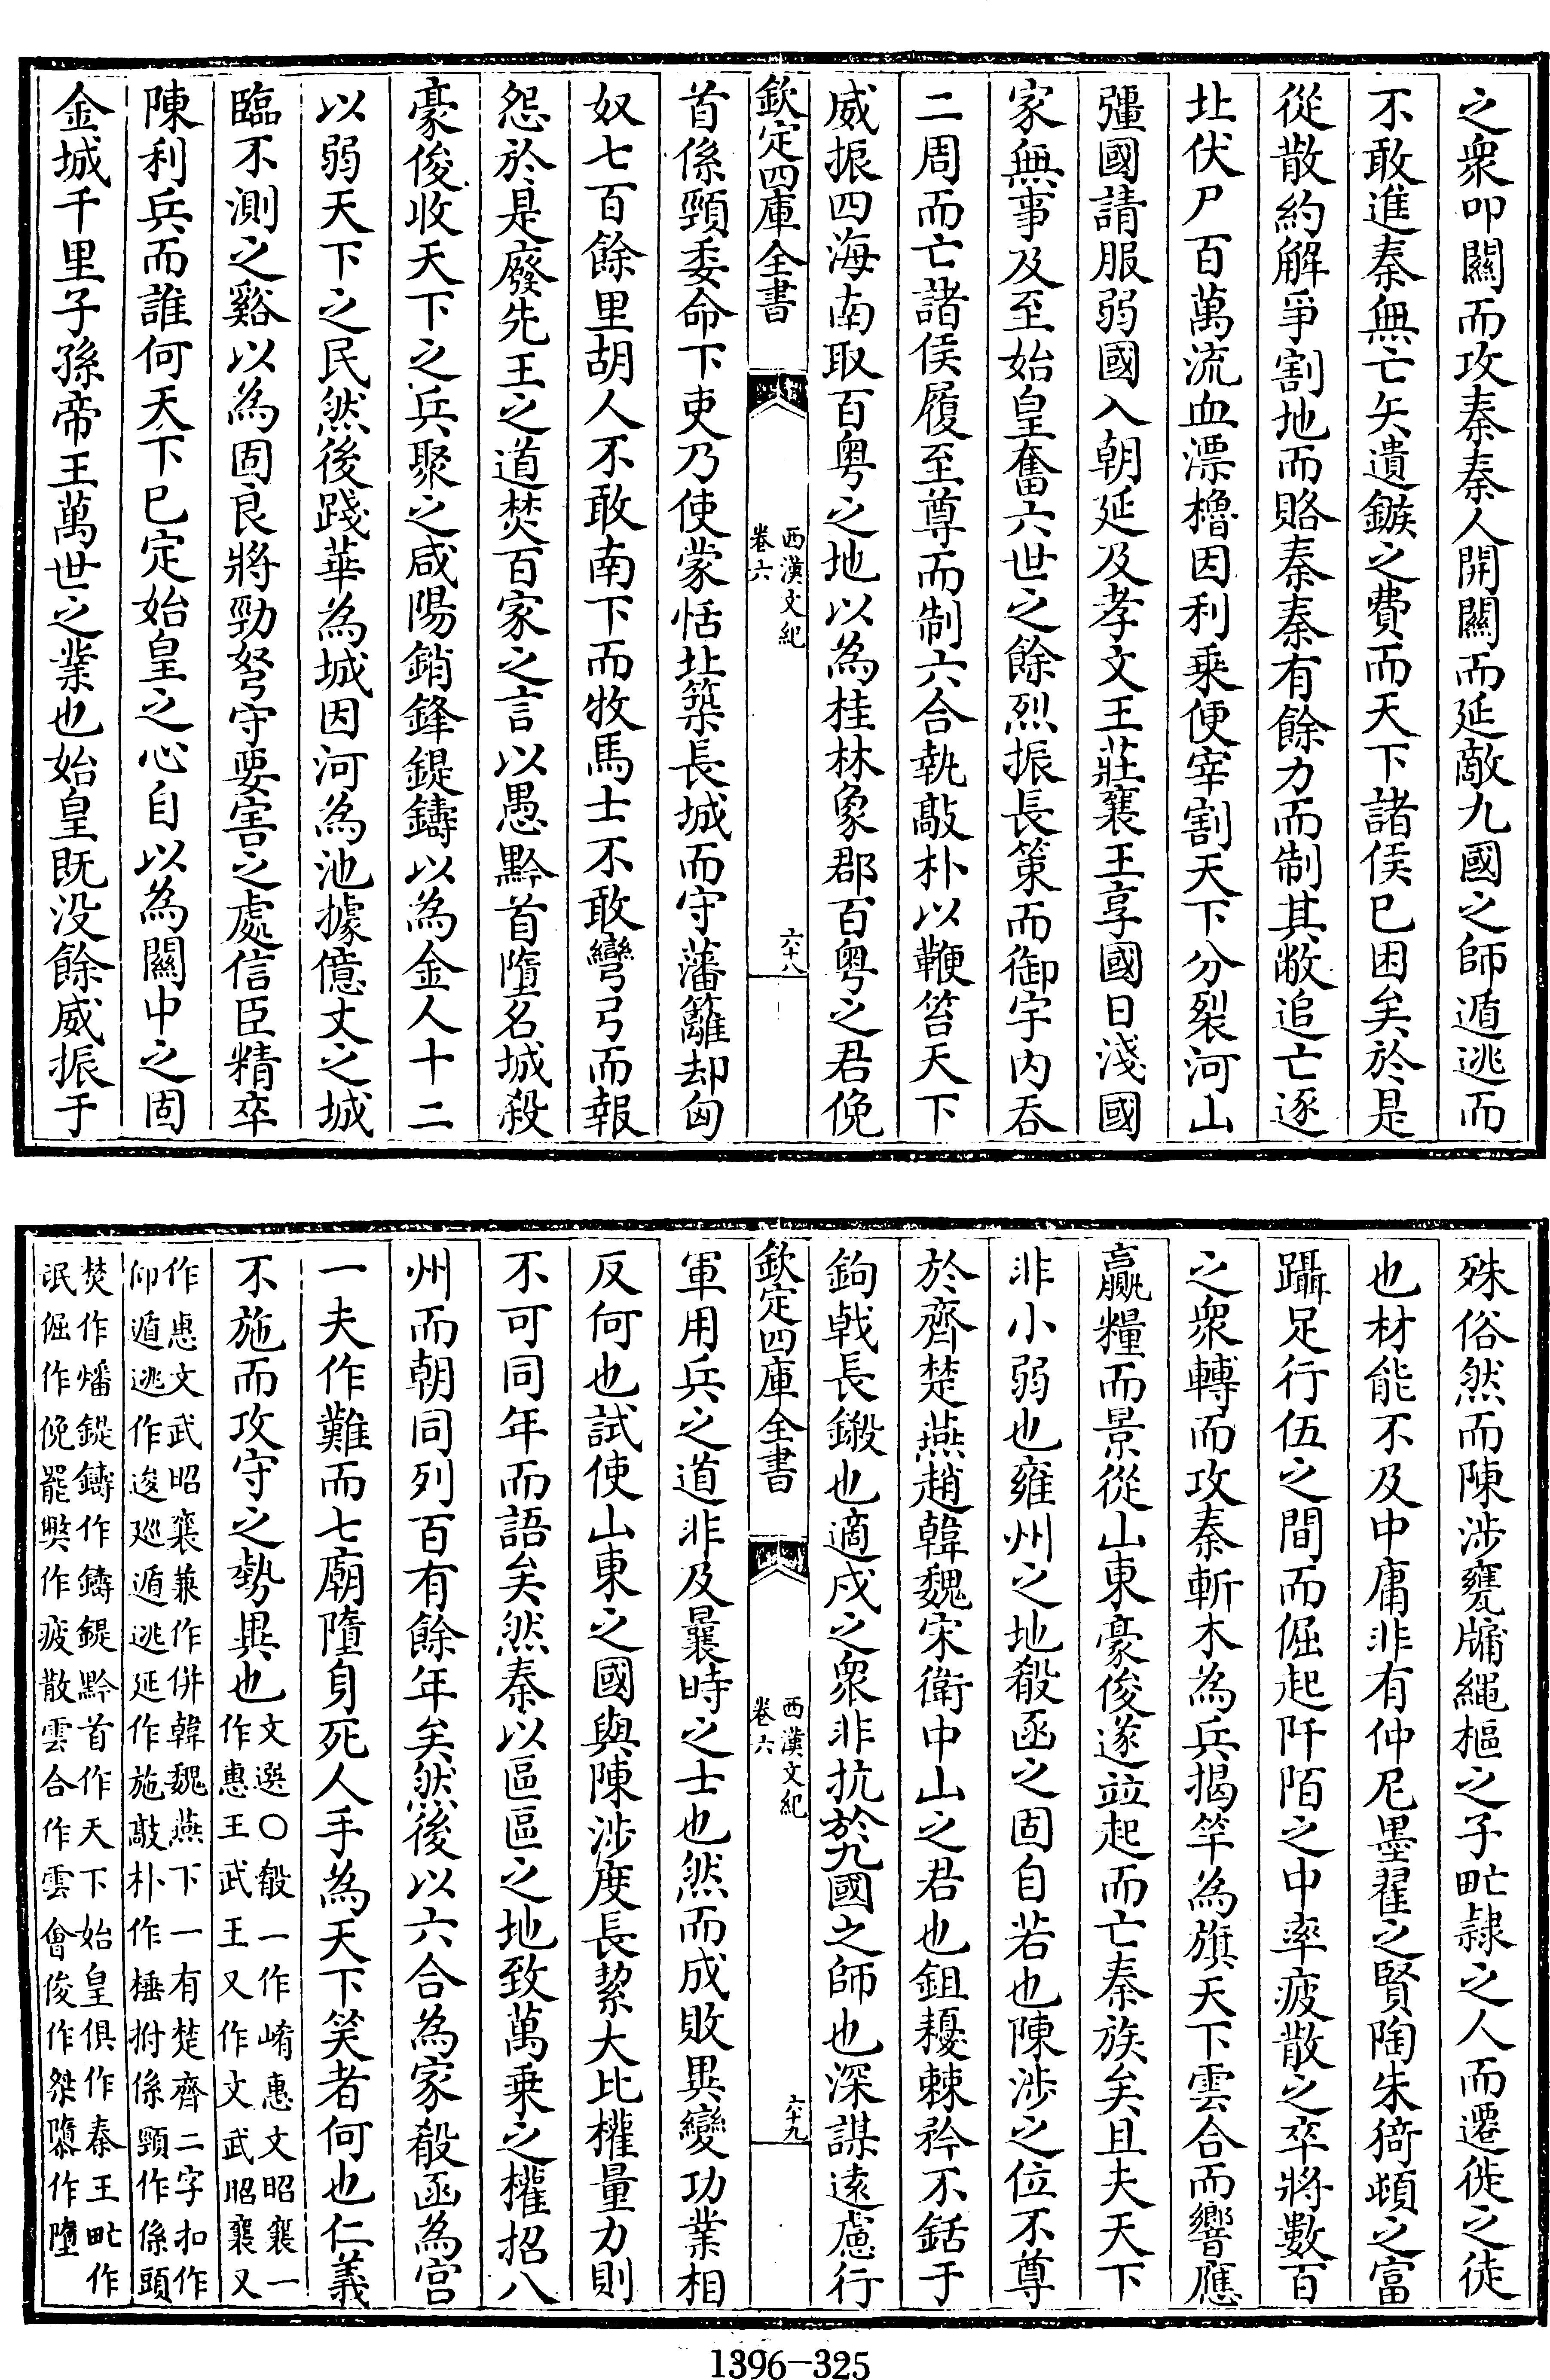 之衆叩關而攻秦秦人開關而延敵九國之師遁逃而
不敢進秦無亡矢遺鏃之費而天下諸侯已困矣於是
從散約解爭割地而賂秦秦有餘力而制其敝追亡逐
北伏尸百萬流血漂櫓因利乗便宰割天下分裂河山
彊國請服弱國入朝延及孝文王莊襄王享國日淺國
家無事及至始皇奮六世之餘烈振長策而御宇内吞
二周而亡諸侯履至尊而制六合執敲朴以鞭笞天下
威振四海南取百粤之地以為桂林象郡百粤之君俛
欽定四庫全書
西漢文紀
卷六
六十八
首係頸委命下吏乃使蒙恬北築長城而守藩籬却匈
奴七百餘里胡人不敢南下而牧馬士不敢彎弓而報
怨於是廢先王之道焚百家之言以愚黔首墮名城殺
豪俊收天下之兵聚之咸陽銷鋒鍉鑄以為金人十二
以弱天下之民然後踐華為城因河為池據億丈之城
臨不測之谿以為固良將勁弩守要害之處信臣精卒
陳利兵而誰何天下已定始皇之心自以為關中之固
金城千里子孫帝王萬世之業也始皇既没餘威振于
殊俗然而陳涉甕牖繩樞之子甿隷之人而遷徙之徒
也材能不及中庸非有仲尼墨翟之賢陶朱猗頓之富
躡足行伍之間而倔起阡陌之中率疲散之卒將數百
之衆轉而攻秦斬木為兵揭竿為旗天下雲合而響應
贏糧而景從山東豪俊遂竝起而亡秦族矣且夫天下
非小弱也雍州之地殽函之固自若也陳涉之位不尊
於齊楚燕趙韓魏宋衛中山之君也鉏耰棘矜不銛于
鉤戟長鎩也適戍之衆非抗於九國之師也深謀逺慮行
欽定四庫全書
西漢文紀
卷六
六十九
軍用兵之道非及曩時之士也然而成敗異變功業相
反何也試使山東之國與陳涉度長絜大比權量力則
不可同年而語矣然秦以區區之地致萬乗之權招八
州而朝同列百有餘年矣然後以六合為家殽函為宫
一夫作難而七廟墮身死人手為天下笑者何也仁義
不施而攻守之勢異也
文選○殽一作崤惠文昭襄一
作惠王武王又作文武昭襄又
作惠文武昭襄兼作併韓魏燕下一有楚齊二字扣作
仰遁逃作逡廵遁逃延作施敲朴作棰拊係頸作係頭
焚作燔鍉鑄作鑄鍉黔首作天下始皇俱作秦王甿作
氓倔作俛罷獘作疲散雲合作雲會俊作桀隳作墮
1396-325